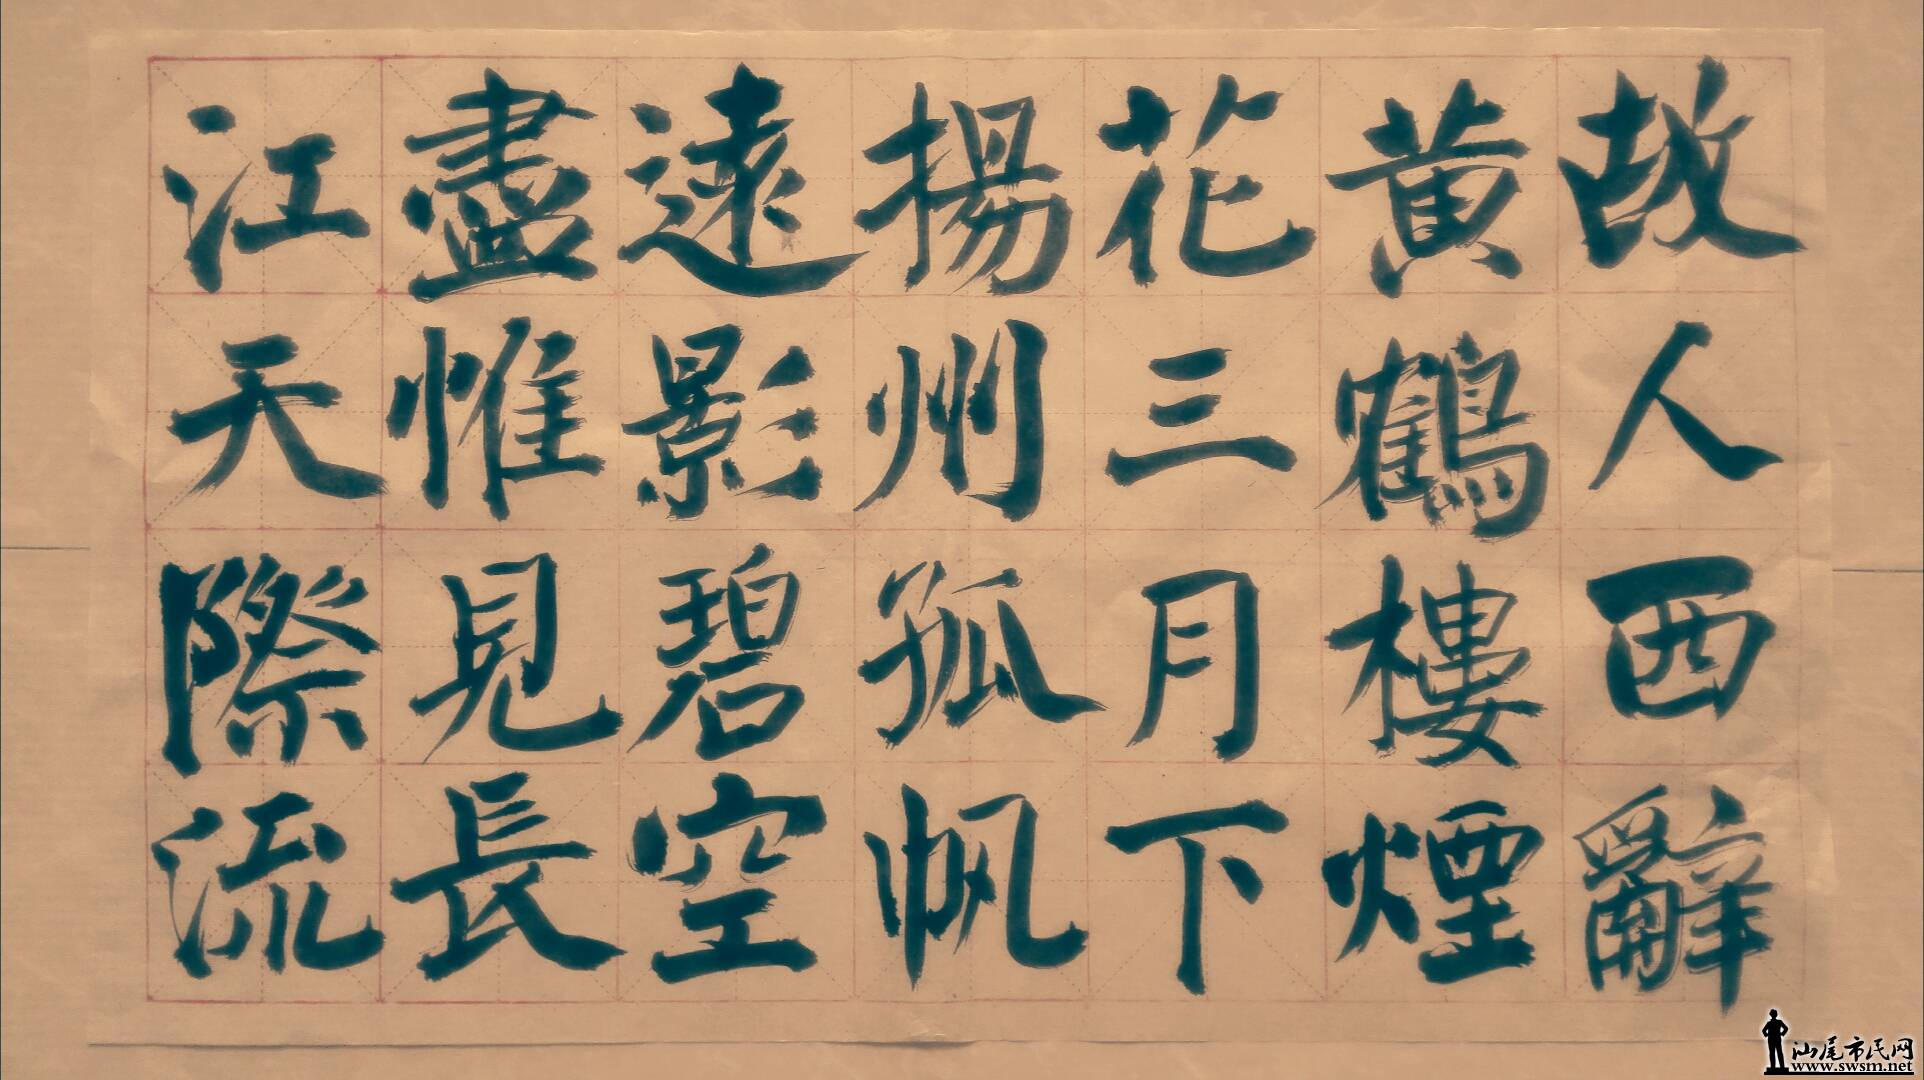 故人西辭
黄鶴樓煙
花三月下
揚州孤帆
遠影碧空
盡惟見長
江天際流
汕尾市民网
www.swsm.net